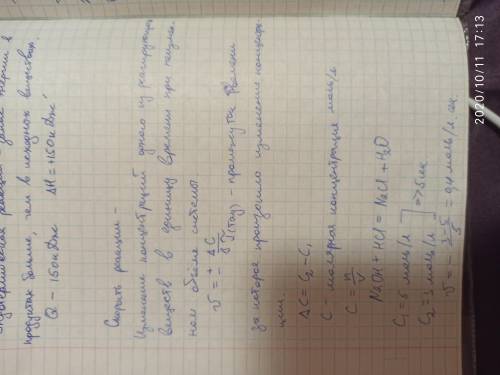 Эндотермическая реакция - запас энергии в
продуктах больше, чем в исходных веществах.
Q - 150 кДж ΔH = +150 кДж
Скорость реакции -
Изменение концентраций одного из реагирующих
веществ в единицу времени при неизмен-
ном объёме системы.
υ = ± ΔC / (Тау) - промежуток времени
за которое произошло изменение концентра-
ции.
ΔC = C₂ - C₁
C - молярная концентрация моль/л
C = n/V
NaOH + HCl = NaCl + H₂O
C₁ = 5 моль/л
C₂ = 3 моль/л ] => 5 сек
υ = - (3-5)/5 = 0,4 моль/л сек
2020/10/11 17:13